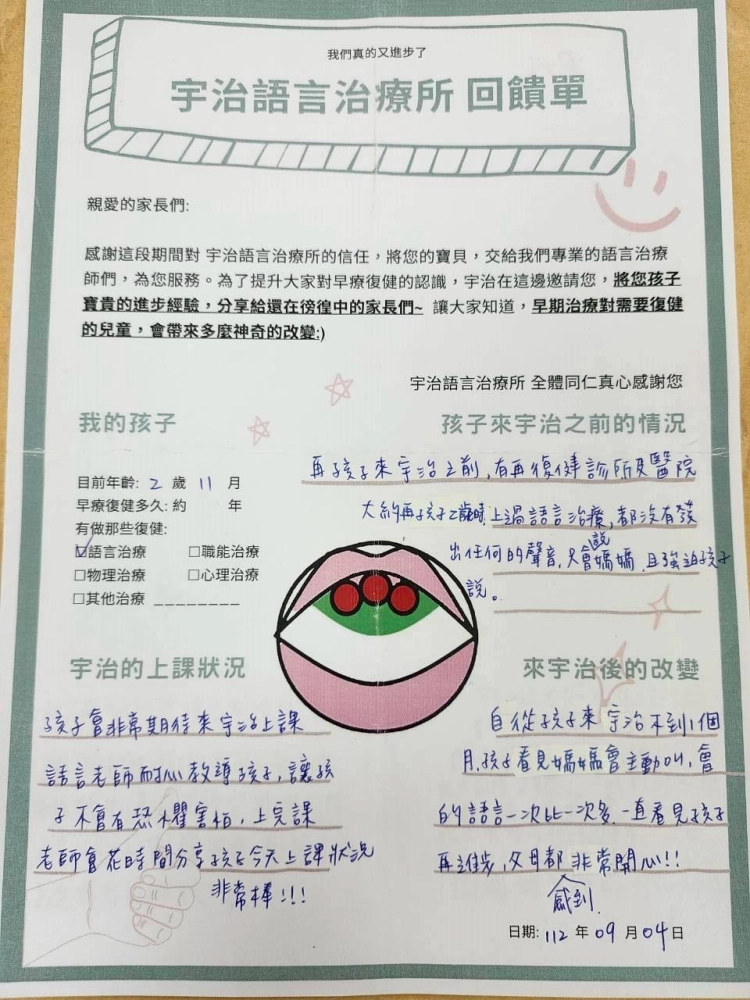 我們真的又進步了
宇治語言治療所 回饋單
親愛的家長們:
感謝這段期間對 宇治語言治療所的信任，將您的寶貝，交給我們專業的語言治療
師們，為您服務。為了提升大家對早療復健的認識，宇治在這邊邀請您，將您孩子
寶貴的進步經驗，分享給還在徬徨中的家長們~ 讓大家知道，早期治療對需要復健
的兒童，會帶來多麼神奇的改變:)
宇治語言治療所 全體同仁真心感謝您
我的孩子
目前年齡: 2 歲 11 月
早療復健多久: 約 年
有做那些復健:
☑語言治療 □職能治療
□物理治療 □心理治療
□其他治療 ________
孩子來宇治之前的情況
再孩子來宇治之前,有再復健診所及醫院
大約再孩子2歲時上過語言治療,都沒有發
出任何的聲音,只會說媽媽,且強迫孩子
說。
宇治的上課狀況
孩子會非常期待來宇治上課
語言老師耐心教導孩子,讓孩
子不會有恐懼害怕,上完課
老師會花時間分享孩子今天上課狀況
非常棒!!!
來宇治後的改變
自從孩子來宇治不到1個
月,孩子看見媽媽會主動叫,會
的語言一次比一次多,一直看見孩子
再進步,父母都感到非常開心!!
日期: 112 年 09 月 04 日